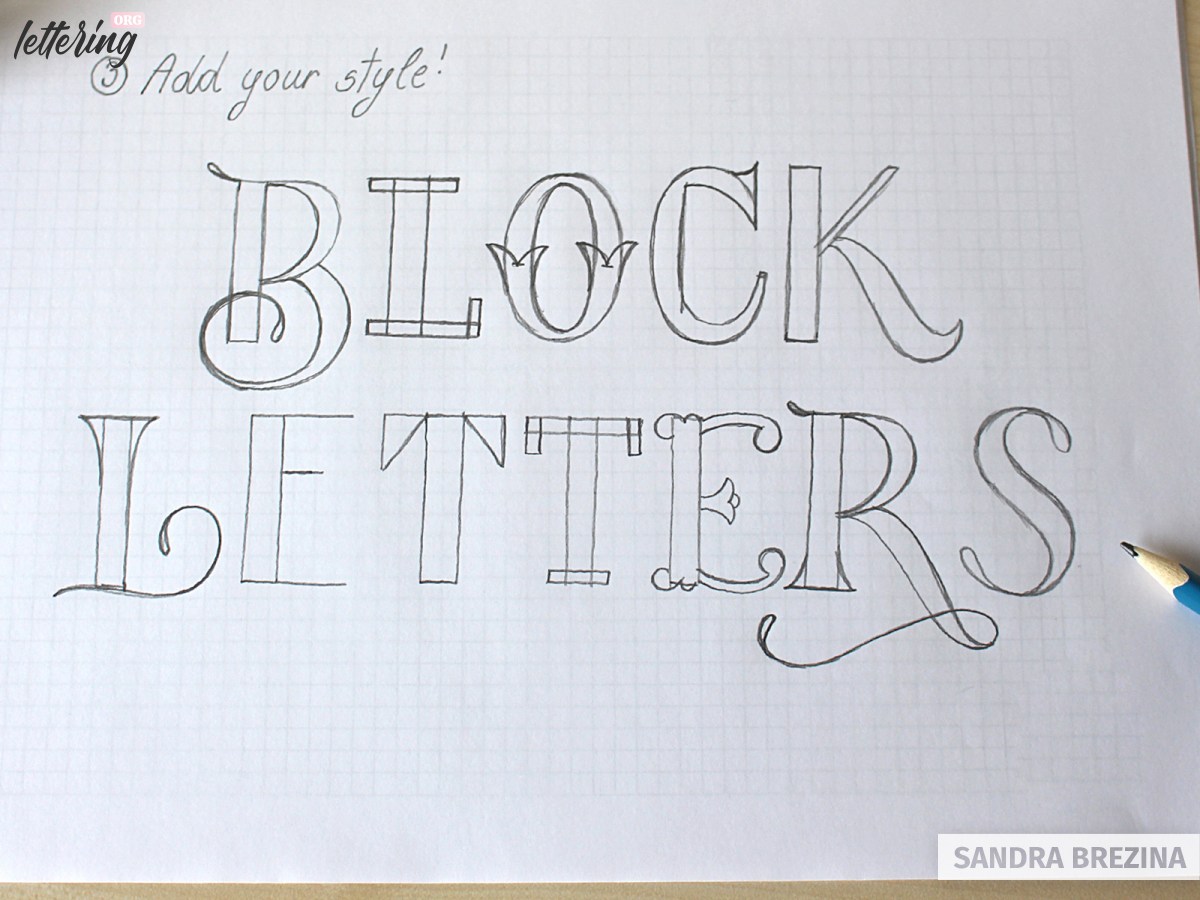 lettering ORG
③ Add your style!
BLOCK
LETTERS
SANDRA BREZINA